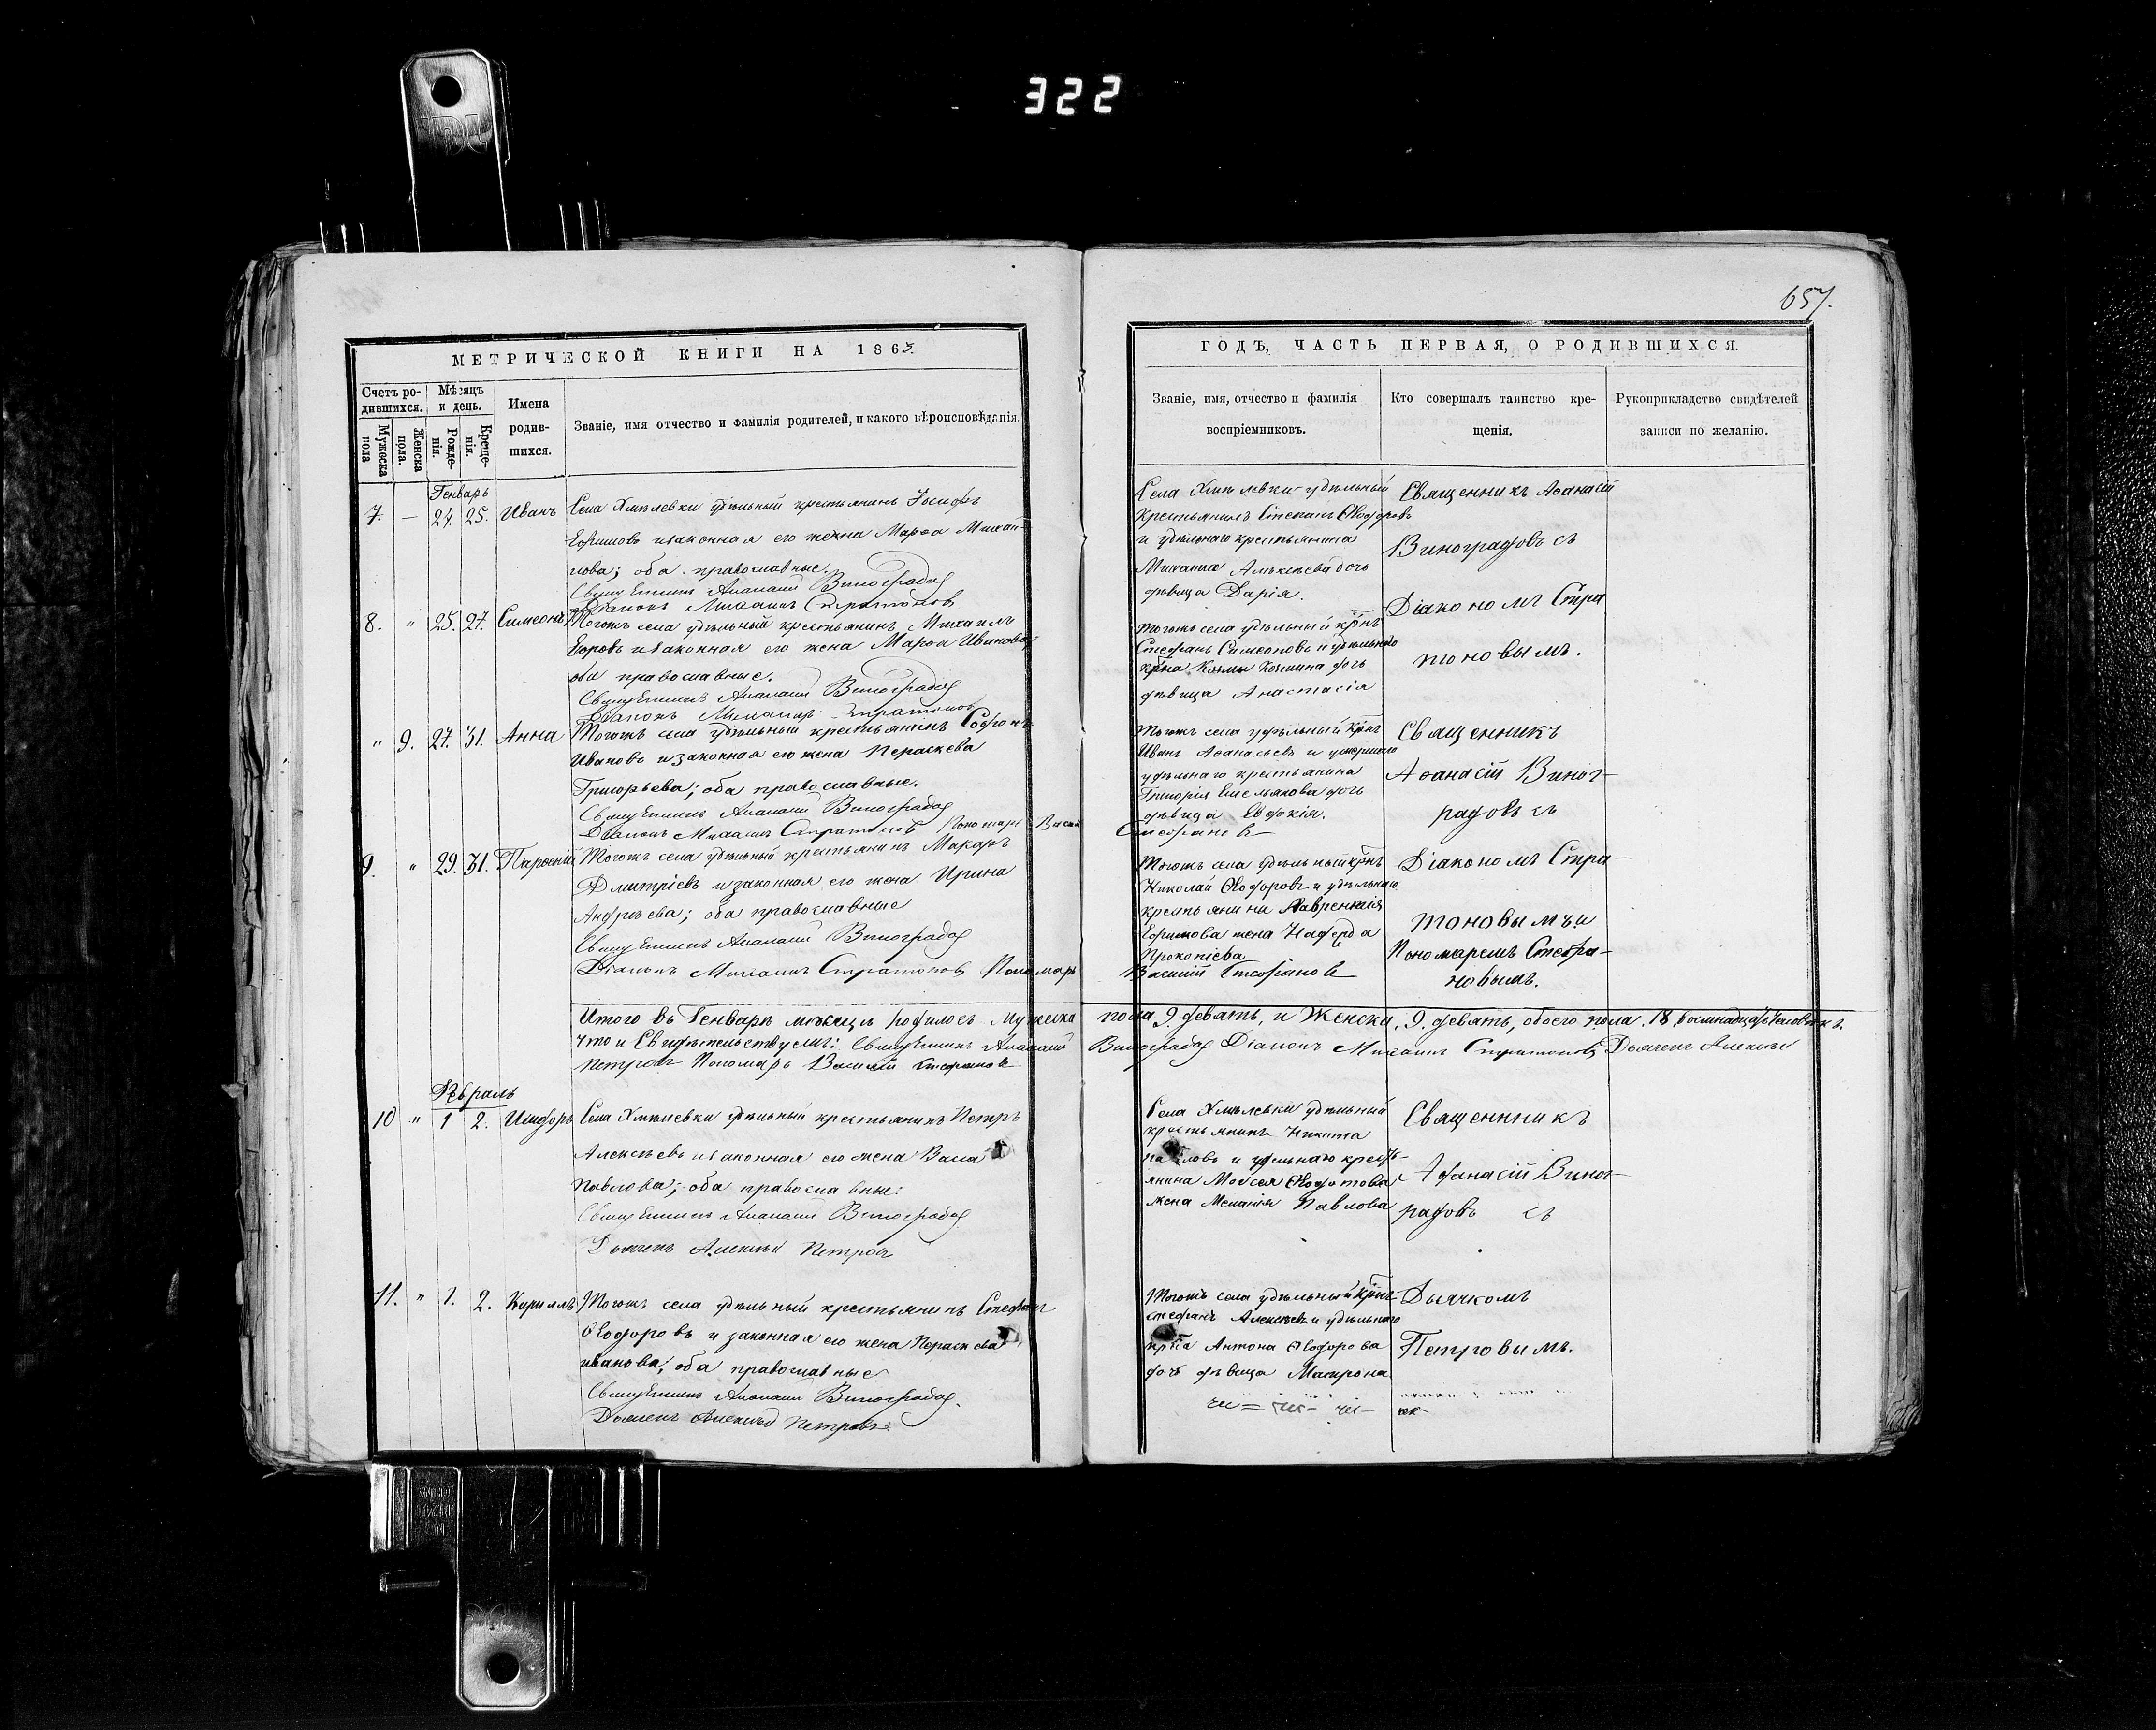 322
657.
МЕТРИЧЕСКОЙ КНИГИ НА 1863.
Счетъ родившихся.
Мужеска пола
Женска пола.
Мѣсяцъ и день.
Рожденія.
Крещенія.
Имена родившихся.
Званіе, имя отчество и фамилія родителей, и какого вѣроисповѣданія.
Генварь
7. — 24. 25. Иванъ
Села Хмѣлевки удѣльный крестьянинъ Іосифъ
Ефимовъ и законная его жена Марѳа Михай
лова; оба православные.
Священникъ Аѳанасій Виноградов
Діаконъ Михаилъ Стратоновъ
8. " 25. 27. Симеонъ
Тогожъ села удѣльный крестьянинъ Михаилъ
Егоровъ и законная его жена Марѳа Иванова
оба православные.
Священникъ Аѳанасій Виноградов
Діаконъ Михаилъ Стратоновъ
" 9. 27. 31. Анна
Тогожъ села удѣльный крестьянинъ Софонъ
Ивановъ и законная его жена Пераскева
Григорьева; оба православные.
Священникъ Аѳанасій Виноградов
Діаконъ Михаилъ Стратоновъ Пономарь Васи
9. " 29. 31. Парѳеній
Тогожъ села удѣльный крестьянинъ Макаръ
Дмитріевъ и законная его жена Ирина
Андрѣева; оба православные
Священникъ Аѳанасій Виноградов
Діаконъ Михаилъ Стратоновъ Пономарь
Итого въ Генварѣ мѣсяцѣ родилось Мужеска
что и Свидѣтельствуемъ: Священникъ Аѳанасій
Петровъ Пономарь Василій Стефановъ
Февраль
10 " 1 2. Исидоръ
Села Хмѣлевки удѣльный крестьянинъ Петръ
Алексѣевъ и законная его жена Васса
Павлова; оба православные:
Священникъ Аѳанасій Виноградов
Дьячекъ Алексѣй Петровъ
11. " 1. 2. Кириллъ
Тогожъ села удѣльный крестьянинъ Стефанъ
Ѳеодоровъ и законная его жена Пераскева
Иванова; оба православные.
Священникъ Аѳанасій Виноградов.
Дьячекъ Алексѣй Петровъ.
ГОДЪ, ЧАСТЬ ПЕРВАЯ, О РОДИВШИХСЯ.
Званіе, имя, отчество и фамилія
воспріемниковъ.
Кто совершалъ таинство кре-
щенія.
Рукоприкладство свидѣтелей
записи по желанію.
Села Хмѣлевки удѣльный
крестьянинъ Степанъ Ѳеодоровъ
и удѣльнаго крестьянина
Михаила Алексѣева дочь
дѣвица Дарія.
Священникъ Аѳанасій
Виноградовъ съ
Діакономъ Стра
тоновымъ.
Тогожъ села удѣльный крнъ
Стефанъ Симеоновъ и удѣльнаго
крна Козмы Козмина дочь
дѣвица Анастасія
Тогожъ села удѣльный крнъ
Иванъ Аѳанасьевъ и умершаго
удѣльнаго крестьянина
Григорія Емельянова дочь
дѣвица Евдокія.
Стефановъ
Священникъ
Аѳанасій Виног-
радовъ съ
Тогожъ села удѣльный крнъ
Николай Ѳеодоровъ и удѣльнаго
крестьянина Лаврентія
Ефимова жена Надежда
Прокопіева
Василій Стефановъ
Діакономъ Стра-
тоновымъ и
Пономаремъ Стефа-
новымъ.
пола 9. девять, и Женска, 9. девять, обоего пола, 18, восемнадцать человѣкъ.
Виноградов Діаконъ Михаилъ Стратоновъ Дьячекъ Алексѣй
Села Хмѣлевки удѣльный
крестьянинъ Никита
Павловъ и удѣльнаго кресть-
янина Моисея
жена Меланія Павлова
Священникъ
Аѳанасій Виног-
радовъ съ
Тогожъ села удѣльный крнъ
Стефанъ Алексѣевъ и удѣльнаго
крна Антона Ѳеодорова
дочь дѣвица Матрона
Дьячкомъ
Петровымъ.